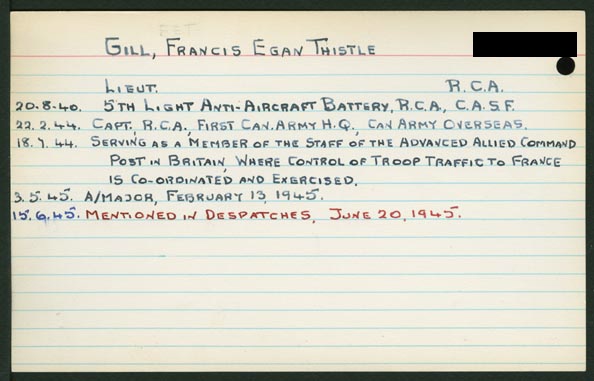 GILL, FRANCIS EGAN THISTLE
LIEUT. R.C.A.
20.8.40. 5TH LIGHT ANTI-AIRCRAFT BATTERY, R.C.A., C.A.S.F.
22.2.44. CAPT., R.C.A., FIRST CAN. ARMY H.Q., CAN ARMY OVERSEAS.
18.7.44. SERVING AS A MEMBER OF THE STAFF OF THE ADVANCED ALLIED COMMAND
POST IN BRITAIN, WHERE CONTROL OF TROOP TRAFFIC TO FRANCE
IS CO-ORDINATED AND EXERCISED.
3.5.45. A/MAJOR, FEBRUARY 13, 1945.
15.6.45. MENTIONED IN DESPATCHES, JUNE 20, 1945.